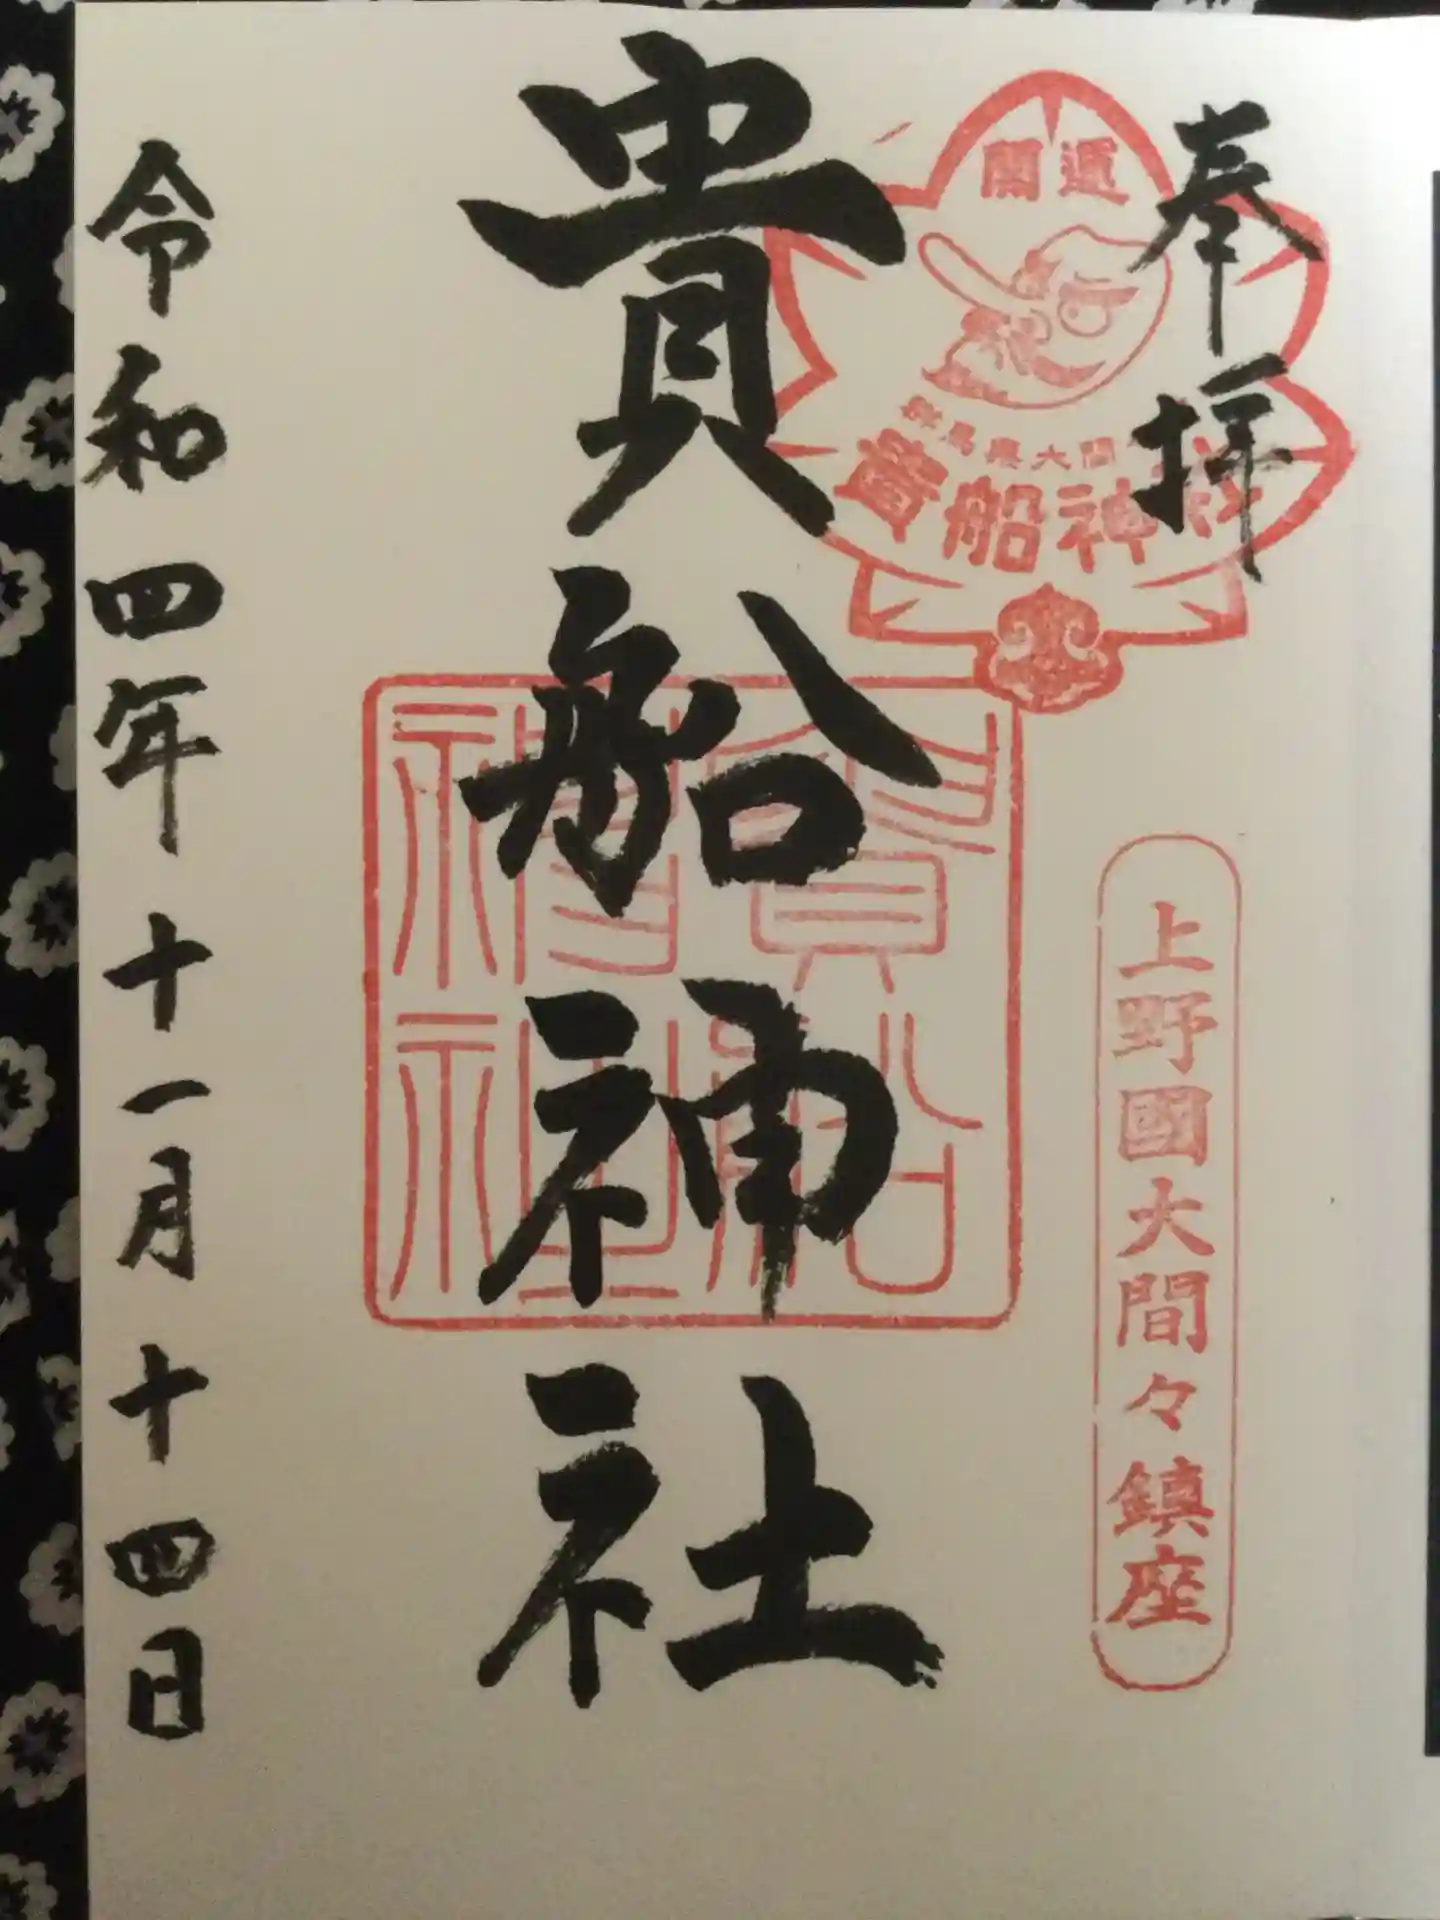 奉拝
開運
群馬県大間
貴船神社
上野國大間々鎮座
貴船神社
令和四年十一月十四日